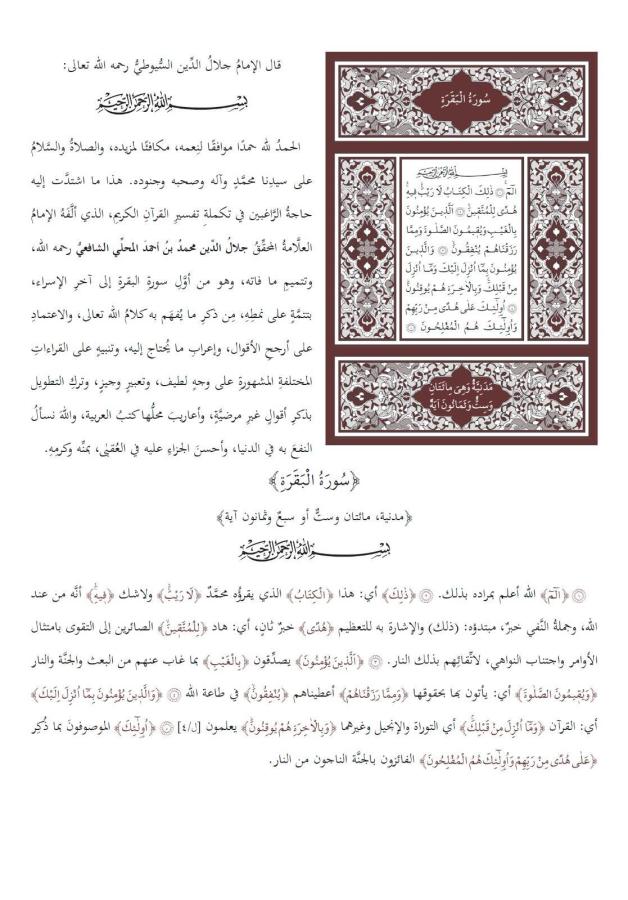 قال الإمامُ جلالُ الدِّين السُّيوطيُّ رحمه الله تعالى:
بِسْمِ اللهِ الرَّحْمٰنِ الرَّحِيْمِ
الحمدُ لله حمدًا موافقًا لنِعمه، مكافئًا لمزيده، والصلاةُ والسَّلامُ
على سيدِنا محمَّدٍ وآله وصحبه وجنوده. هذا ما اشتدَّت إليه
حاجةُ الرَّاغبين في تكملةِ تفسيرِ القرآنِ الكريم، الذي ألَّفَهُ الإمامُ
العلَّامةُ المحقِّقُ جلالُ الدِّين محمدُ بنُ أحمدَ المحلِّي الشافعيُّ رحمه الله،
وتتميمِ ما فاته، وهو من أوَّلِ سورةِ البقرةِ إلى آخرِ الإسراء،
بتتمَّةٍ على نمطِهِ، مِن ذكرِ ما يُفهَم به كلامُ الله تعالى، والاعتمادِ
على أرجحِ الأقوال، وإعرابِ ما يُحتاج إليه، وتنبيهٍ على القراءاتِ
المختلفةِ المشهورةِ على وجهٍ لطيف، وتعبيرٍ وجيزٍ، وتركِ التطويل
بذكرِ أقوالٍ غيرِ مرضيَّةٍ، وأعاريبَ محلُّها كتبُ العربية، واللهَ نسألُ
النفعَ به في الدنيا، وأحسنَ الجزاءِ عليه في العُقبٰى، بمنِّه وكرمِهِ.
سُورَةُ الْبَقَرَةِ
بِسْمِ اللهِ الرَّحْمٰنِ الرَّحِيْمِ
الٓمٓ ۝ ذٰلِكَ الْكِتَابُ لَا رَيْبَ فِيهِ
هُدًى لِلْمُتَّقِينَ ۝ اَلَّذِينَ يُؤْمِنُونَ
بِالْغَيْبِ وَيُقِيمُونَ الصَّلٰوةَ وَمِمَّا
رَزَقْنَاهُمْ يُنْفِقُونَ ۝ وَالَّذِينَ
يُؤْمِنُونَ بِمَٓا اُنْزِلَ اِلَيْكَ وَمَٓا اُنْزِلَ
مِنْ قَبْلِكَ وَبِالْاٰخِرَةِ هُمْ يُوقِنُونَ
۝ اُولٰٓئِكَ عَلٰى هُدًى مِنْ رَبِّهِمْ
وَاُولٰٓئِكَ هُمُ الْمُفْلِحُونَ ۝
مَدَنِيَّةٌ وَهِيَ مِائَتَانِ
وَسِتٌّ وَثَمَانُونَ اٰيَةً
﴿سُورَةُ الْبَقَرَةِ﴾
﴿مدنية، مائتان وستٌّ أو سبعٌ وثمانون آية﴾
بِسْمِ اللهِ الرَّحْمٰنِ الرَّحِيْمِ
۝ ﴿الٓمٓ﴾ الله أعلم بمراده بذلك. ۝ ﴿ذٰلِكَ﴾ أي: هذا ﴿الْكِتَابُ﴾ الذي يقرؤُه محمَّدٌ ﴿لَا رَيْبَ﴾ ولاشك ﴿فِيهِ﴾ أنَّه من عند
الله، وجملةُ النَّفي خبرٌ، مبتدؤه: (ذلك) والإشارة به للتعظيم ﴿هُدًى﴾ خبرٌ ثانٍ، أي: هاد ﴿لِلْمُتَّقِينَ﴾ الصائرين إلى التقوى بامتثال
الأوامر واجتناب النواهي، لاتِّقائِهم بذلك النار. ۝ ﴿اَلَّذِينَ يُؤْمِنُونَ﴾ يصدِّقون ﴿بِالْغَيْبِ﴾ بما غاب عنهم من البعث والجنَّة والنار
﴿وَيُقِيمُونَ الصَّلٰوةَ﴾ أي: يأتون بها بحقوقها ﴿وَمِمَّا رَزَقْنَاهُمْ﴾ أعطيناهم ﴿يُنْفِقُونَ﴾ في طاعة الله ۝ ﴿وَالَّذِينَ يُؤْمِنُونَ بِمَٓا اُنْزِلَ اِلَيْكَ﴾
أي: القرآن ﴿وَمَٓا اُنْزِلَ مِنْ قَبْلِكَ﴾ أي التوراة والإنجيل وغيرهما ﴿وَبِالْاٰخِرَةِ هُمْ يُوقِنُونَ﴾ يعلمون [ل/٤] ۝ ﴿اُولٰٓئِكَ﴾ الموصوفونَ بما ذُكِرَ
﴿عَلٰى هُدًى مِنْ رَبِّهِمْ وَاُولٰٓئِكَ هُمُ الْمُفْلِحُونَ﴾ الفائزون بالجنَّة الناجون من النار.